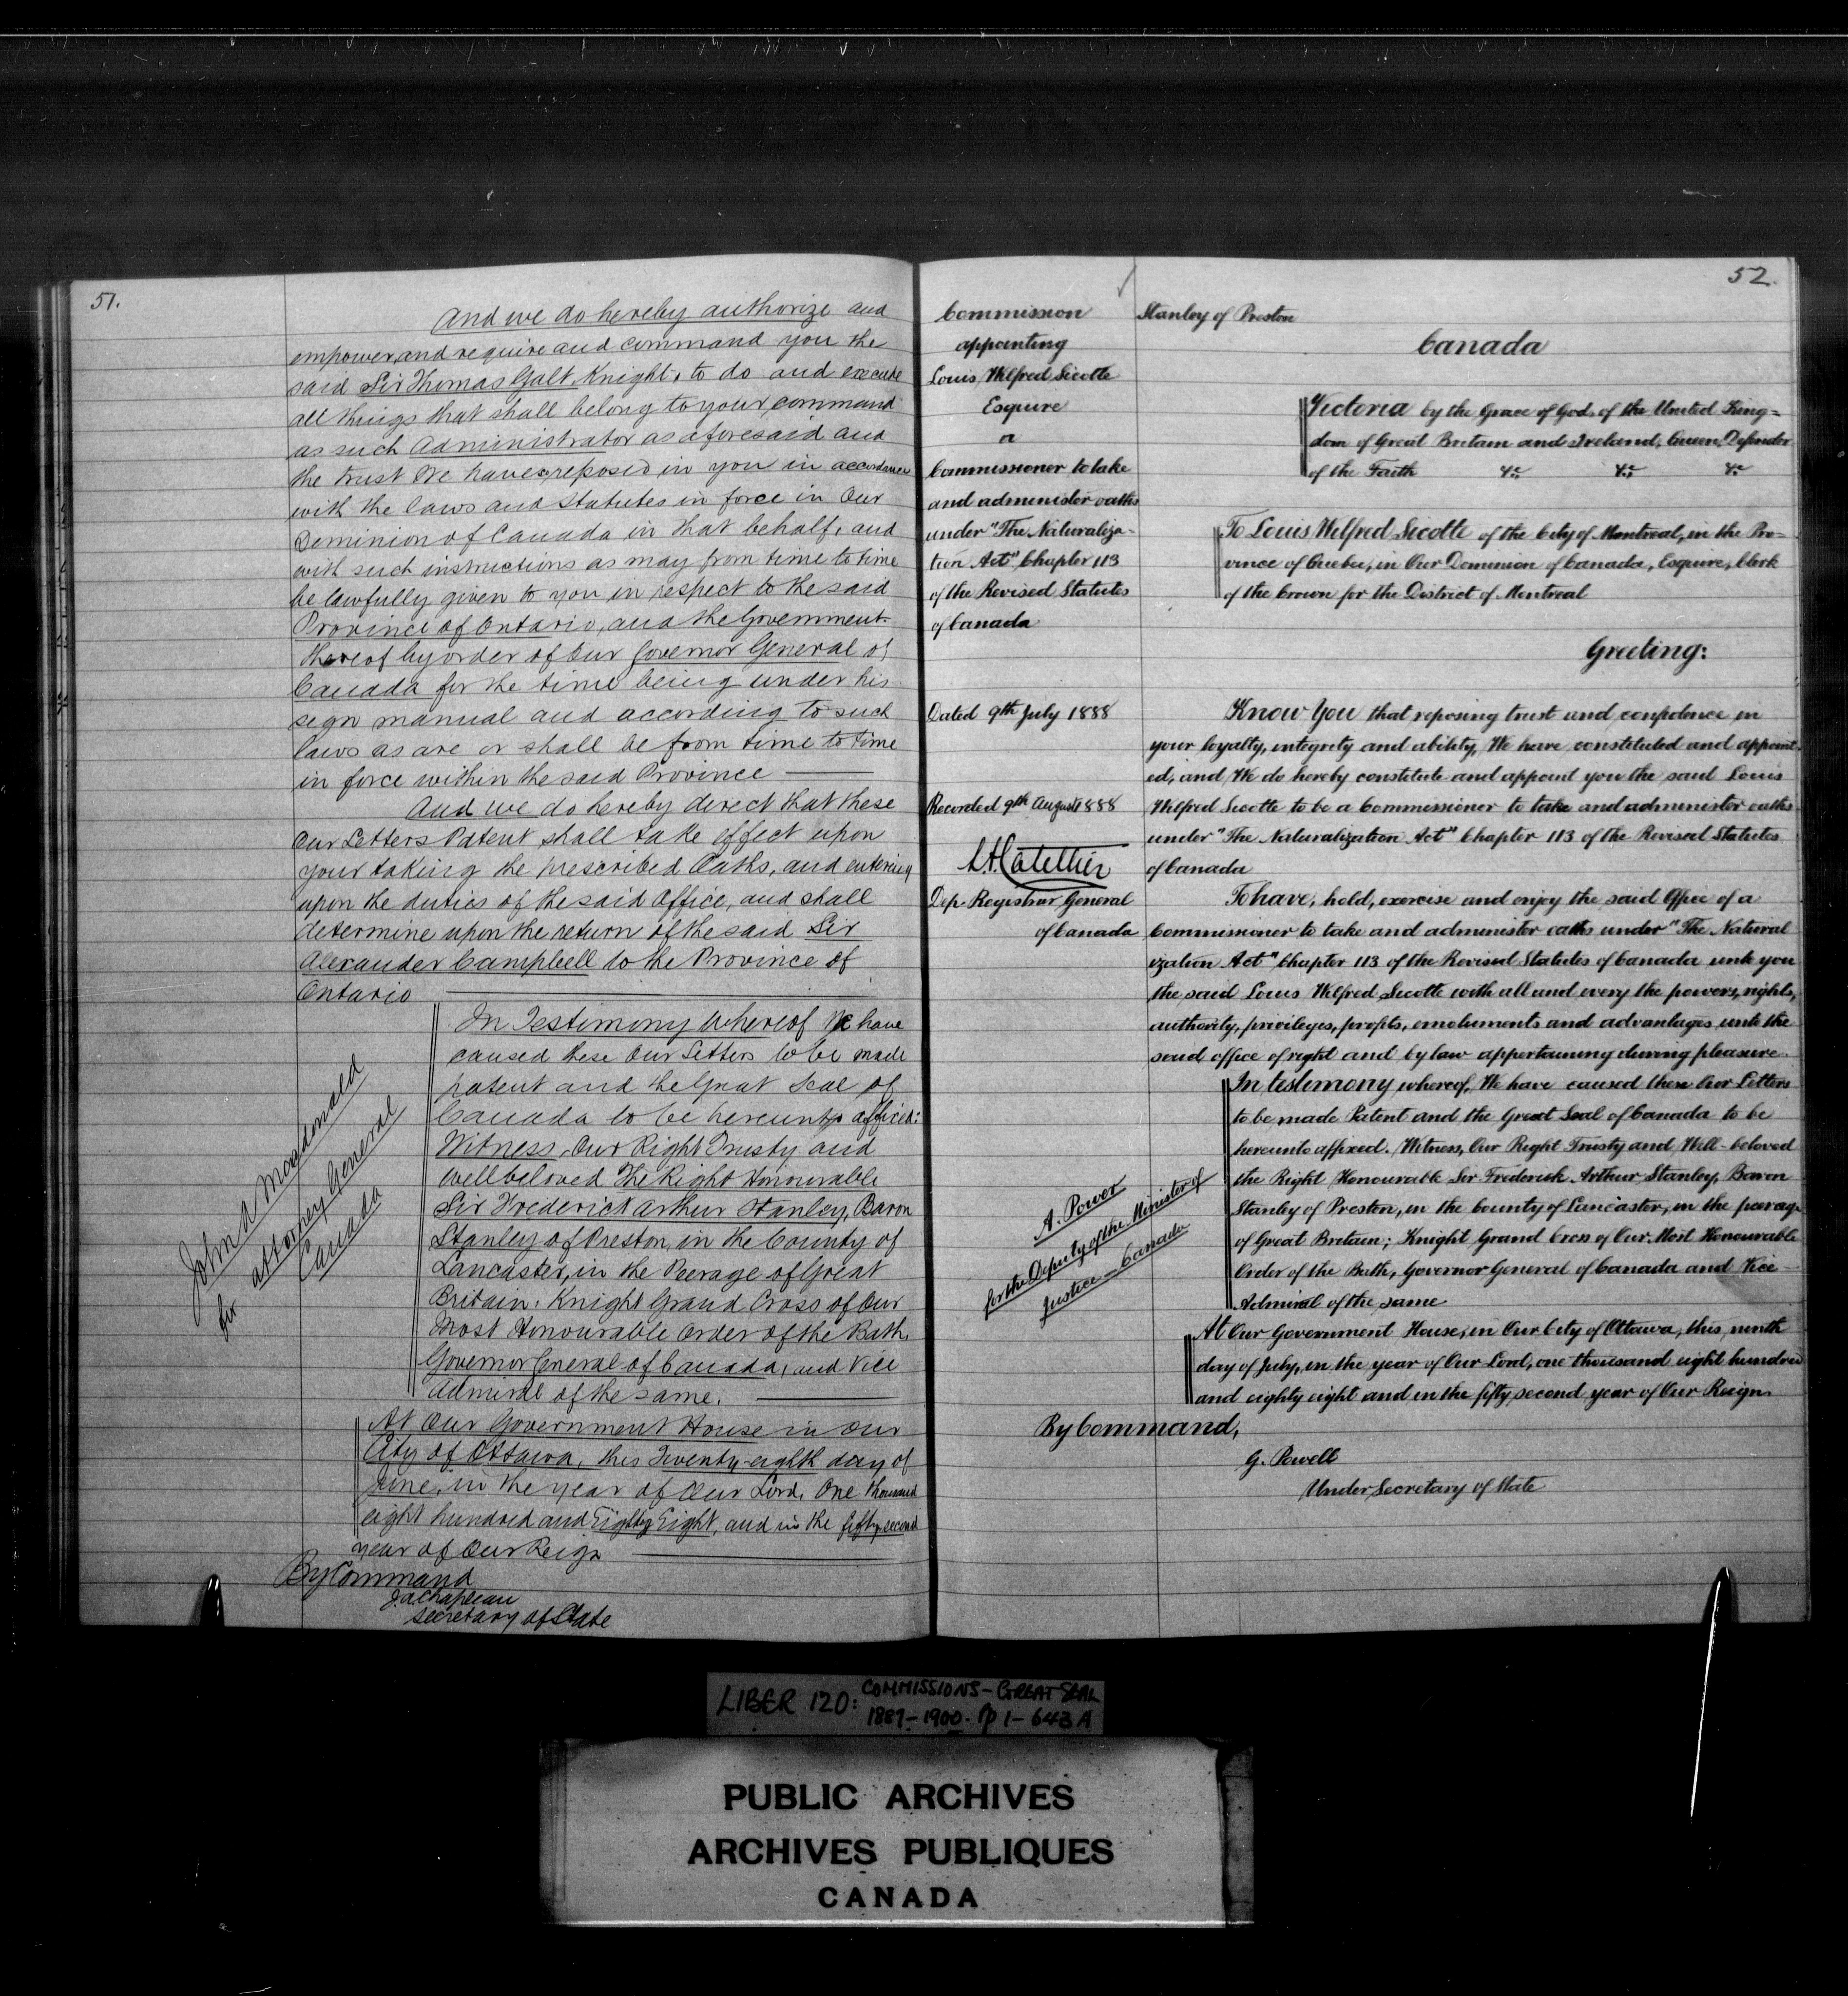 51.
And we do hereby authorize and
empower and require and command you the
said Sir Thomas Galt, Knight, to do and execute
all things that shall belong to your command
as such Administrator as aforesaid and
the trust We have reposed in you in accordance
with the laws and Statutes in force in Our
Dominion of Canada in that behalf, and
with such instructions as may from time to time
be lawfully given to you in respect to the said
Province of Ontario, and the Government
thereof by order of Our Governor General of
Canada for the time being under his
sign manual and according to such
laws as are or shall be from time to time
in force within the said Province
And we do hereby direct that these
Our Letters Patent shall take effect upon
your taking the prescribed Oaths, and entering
upon the duties of the said Office, and shall
determine upon the return of the said Sir
Alexander Campbell to the Province of
Ontario
In Testimony Whereof We have
caused these Our Letters to be made
patent and the Great Seal of
Canada to be hereunto affixed:
Witness, Our Right Trusty and
Wellbeloved The Right Honourable
Sir Frederick Arthur Stanley, Baron
Stanley of Preston, in the County of
Lancaster, in the Peerage of Great
Britain, Knight Grand Cross of Our
Most Honourable Order of the Bath,
Governor General of Canada, and Vice
Admiral of the same.
John A Macdonald
for Attorney General
Canada
At Our Government House in Our
City of Ottawa, this Twenty-eighth day of
June, in the year of Our Lord, One thousand
eight hundred and Eighty Eight, and in the fifty second
year of Our Reign
By Command
J. A. Chapleau
Secretary of State
52.
Commission
appointing
Louis Wilfred Sicotte
Esquire
a
Commissioner to take
and administer oaths
under "The Naturaliza-
tion Act" Chapter 113
of the Revised Statutes
of Canada
Dated 9th July 1888
Recorded 9th August 1888
Dep. Registrar General
of Canada
Stanley of Preston
Canada
Victoria by the Grace of God, of the United King=
dom of Great Britain and Ireland, Queen, Defender
of the Faith &c &c &c
To Louis Wilfred Sicotte of the City of Montreal, in the Pro=
vince of Quebec, in Our Dominion of Canada, Esquire, Clerk
of the Crown for the District of Montreal
Greeting:
Know You that reposing trust and confidence in
your loyalty, integrity and ability, We have constituted and appoint-
ed, and We do hereby constitute and appoint you the said Louis
Wilfred Sicotte to be a Commissioner to take and administer oaths
under "The Naturalization Act" Chapter 113 of the Revised Statutes
of Canada
To have, hold, exercise and enjoy the said Office of a
Commissioner to take and administer oaths under "The Natural
ization Act" Chapter 113 of the Revised Statutes of Canada unto you
the said Louis Wilfred Sicotte with all and every the powers, rights,
authority, privileges, profits, emoluments and advantages unto the
said office of right and by law appertaining during pleasure.
In testimony whereof, We have caused these Our Letters
to be made Patent and the Great Seal of Canada to be
hereunto affixed. Witness, Our Right Trusty and Well-beloved
the Right Honourable Sir Frederick Arthur Stanley, Baron
Stanley of Preston, in the County of Lancaster, in the peerage
of Great Britain; Knight Grand Cross of Our Most Honourable
Order of the Bath, Governor General of Canada and Vice-
Admiral of the same
A. Power
for the Deputy of the Minister of
Justice - Canada
At Our Government House, in Our City of Ottawa, this ninth
day of July, in the year of Our Lord, one thousand eight hundred
and eighty eight and in the fifty second year of Our Reign.
By Command,
G. Powell
Under Secretary of State
LIBER 120: COMMISSIONS - GREAT SEAL
1887-1900. pp 1-643A
PUBLIC ARCHIVES
ARCHIVES PUBLIQUES
CANADA